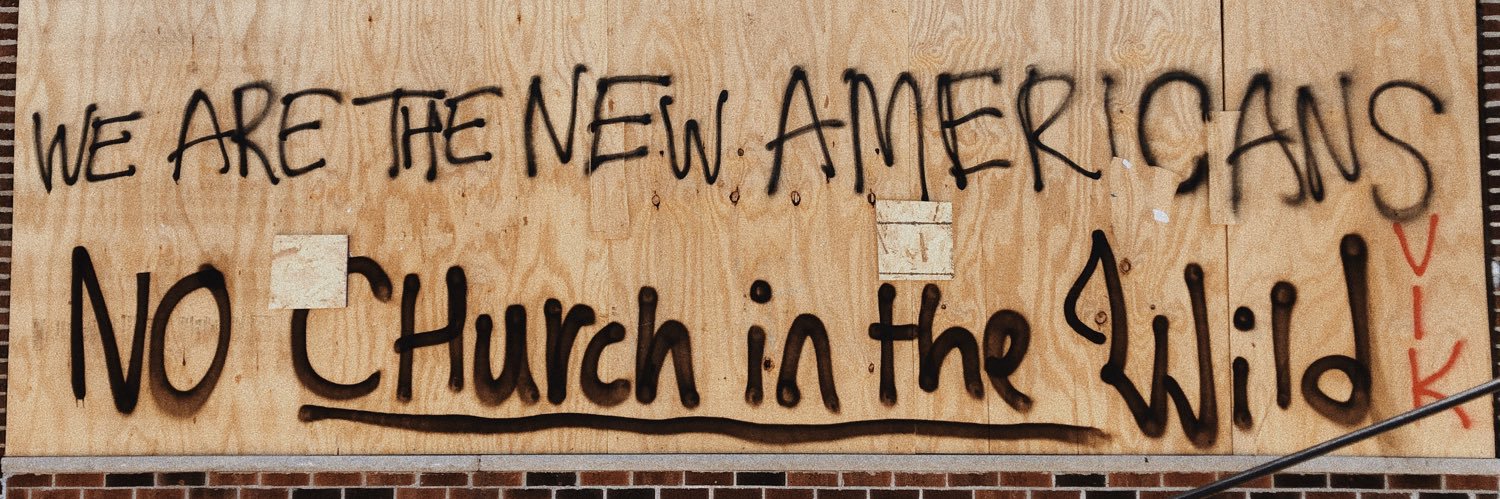 WE ARE THE NEW AMERICANS
NO CHurch in the Wild
VIK